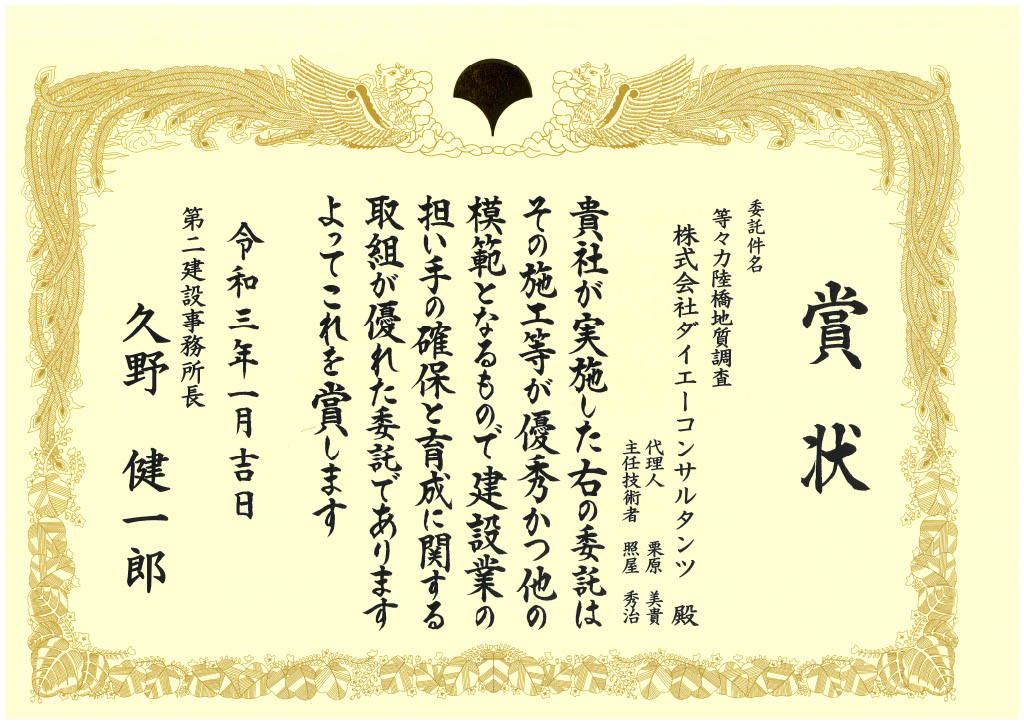 賞状
委託件名
等々力陸橋地質調査
株式会社ダイエーコンサルタンツ 殿
代理人 栗原 美貴
主任技術者 照屋 秀治
貴社が実施した右の委託は
その施工等が優秀かつ他の
模範となるもので建設業の
担い手の確保と育成に関する
取組が優れた委託であります
よってこれを賞します
令和三年一月吉日
第二建設事務所長
久野 健一郎